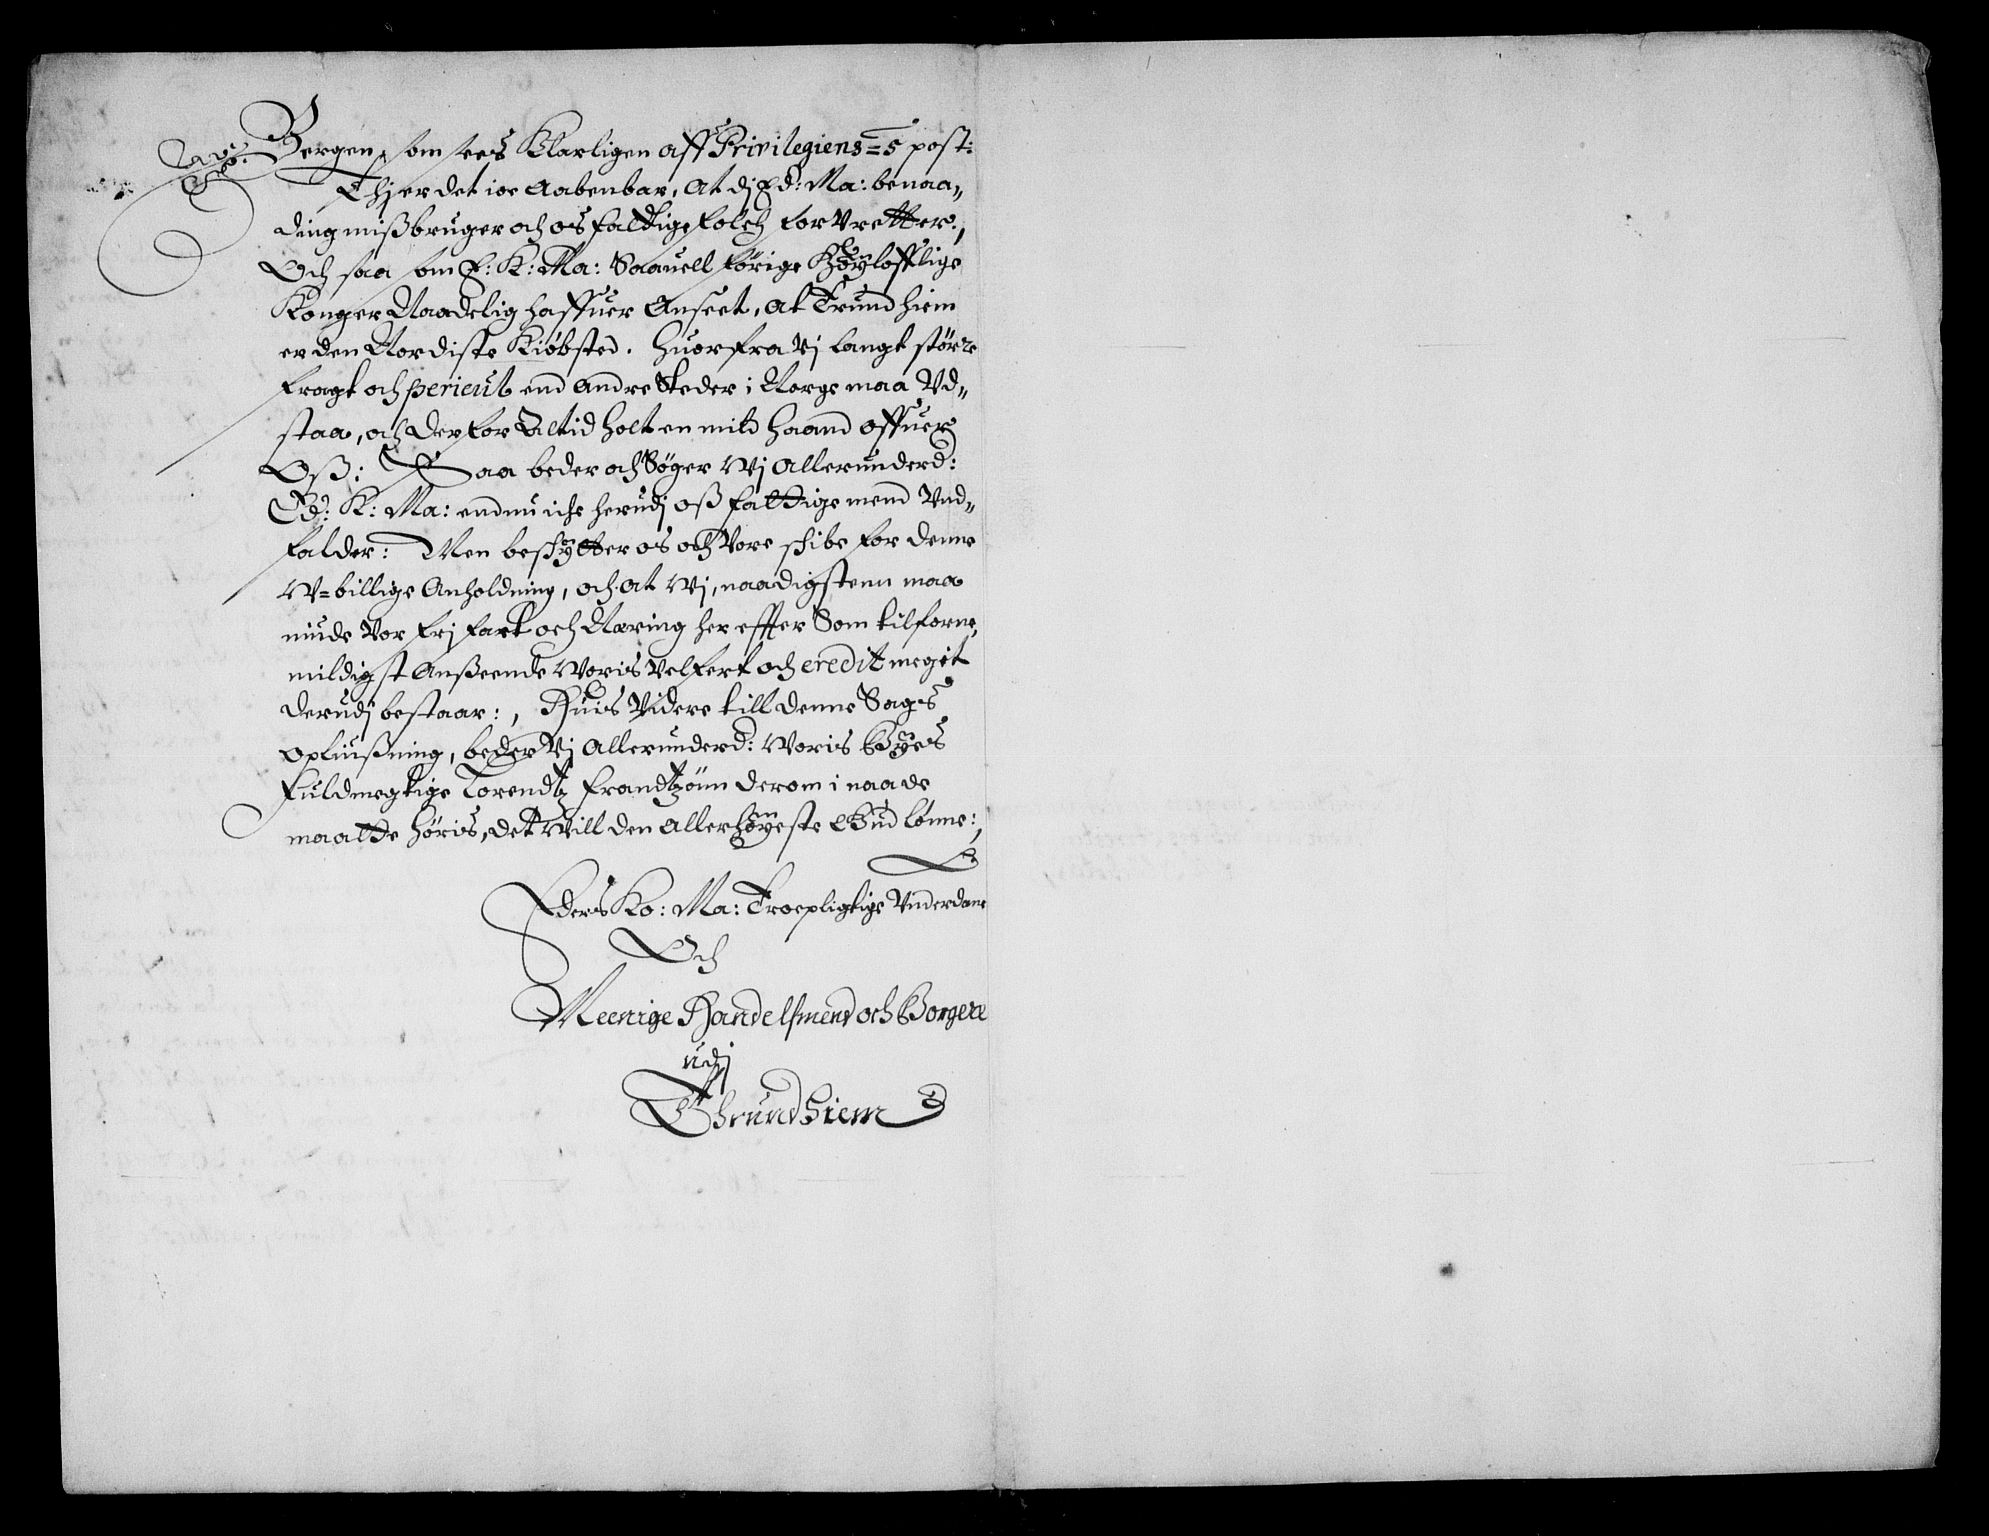 Bergen, som sees Klarligen aff Privilegiens = 5 post:
Thj er det ioe Aabenbar, At dj Ed: Ma: benaa„
ding mißbruger och os fattige folch for Vretter,
Och saa som E: K: Ma: Saauell förige Høylofflige
Konger Naadelig haffuer Anseet, At Trundhiem
er den Nordiste Kiöbsted. Huorfra Vj langt större
fragt och pericul end andre Steder i Norge maa Vd„
staa, och derfor Altid holt en mild haand offuer
Oß: Saa beder och Söger Wj Allerunderd:
Ed: K: Ma: endnu iche herudj oß fattige mend Und„
falder: Men beskytter os och Vore schibe for denne
W=billige Anholdning, och at Wj, naadigstenn maa
niude Vor frj fart och Næring her effter Som tilforne,
mildigst Anßeende Woris Velfert och credit megit
derudj bestaar:, Huis Videre till denne Sags
opliußning, beder Vj Allerunderd: Woris Byes
fuldmegtige Lorendtz Frandtzöun derom i naade
maatte höris, det Will den Allerhöyeste Gud lönne:,
Eders Ko: Ma: Troepligtige Vnderdane
Och
Meenige Handelsmend och Borgere
udj
Thrundhiem